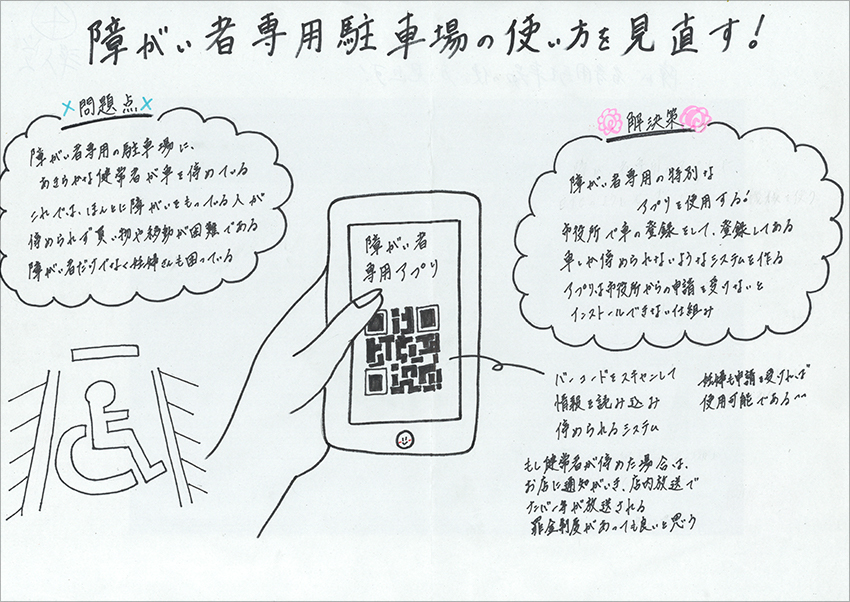 障がい者専用駐車場の使い方を見直す!
問題点
障がい者専用の駐車場に、
あきらかな健常者が車を停めている
これでは、ほんとに障がいをもっている人が
停められず買い物や移動が困難である
障がい者だけでなく妊婦さんも困っている
解決策
障がい者専用の特別な
アプリを使用する!
市役所で車の登録をして、登録してある
車しか停められないようなシステムを作る
アプリは市役所からの申請を受けないと
インストールできない仕組み
障がい者
専用アプリ
バーコードをスキャンして
情報を読み込み
停められるシステム
妊婦も申請を受ければ
使用可能である^^
もし健常者が停めた場合は、
お店に通知がいき、店内放送で
ナンバー等が放送される
罰金制度があっても良いと思う